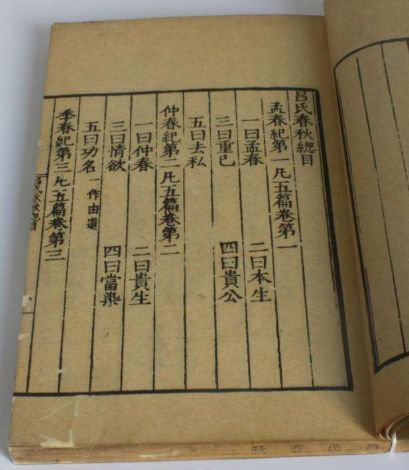 呂氏春秋總目
孟春紀第一凡五篇卷第一
一曰孟春 二曰本生
三曰重己 四曰貴公
五曰去私
仲春紀第二凡五篇卷第二
一曰仲春 二曰貴生
三曰情欲 四曰當染
五曰功名 一作由道
季春紀第三凡五篇卷第三